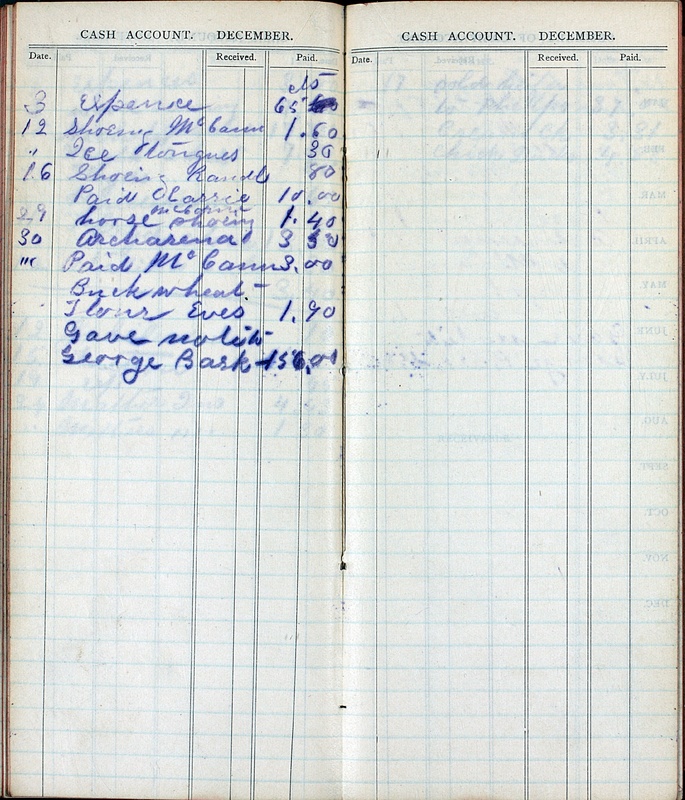 CASH ACCOUNT. DECEMBER.
Date. Received. Paid.
cts
3 Expence 65
12 Shoeing McCann 1.60
" Ice Tongues 30
16 Shoeing Kandl 80
Paid Classie 10.00
McCann
29 horse shoeing 1.40
30 3 50
"" Paid McCann 3.00
Buckwheat
Flour Eves 1.90
Gave note to
George Bark 156.01
CASH ACCOUNT. DECEMBER.
Date. Received. Paid.